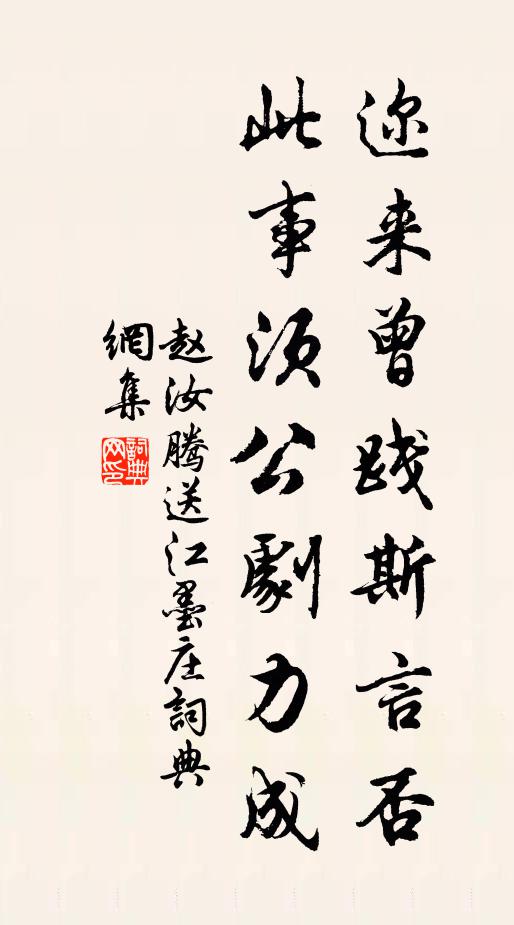 迩来曾践斯言否
此事须公剧力成
赵汝腾送江墨庄詞典
網集
詞典
网印